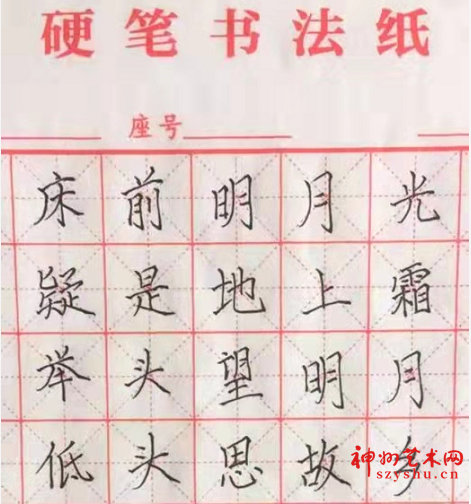 硬笔书法纸
座号
床前明月光
疑是地上霜
举头望明月
低头思故乡
神州艺术网
szyshu.cn